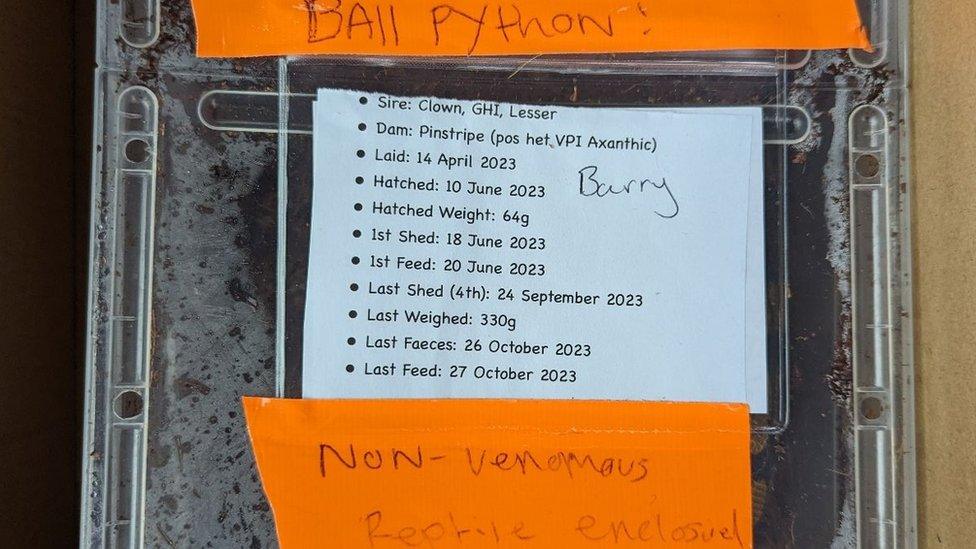 BAll PYthon!
• Sire: Clown, GHI, Lesser
• Dam: Pinstripe (pos het VPI Axanthic)
• Laid: 14 April 2023
Barry
• Hatched: 10 June 2023
• Hatched Weight: 64g
• 1st Shed: 18 June 2023
• 1st Feed: 20 June 2023
• Last Shed (4th): 24 September 2023
• Last Weighed: 330g
• Last Faeces: 26 October 2023
• Last Feed: 27 October 2023
Non-venomous
Reptile enclosed